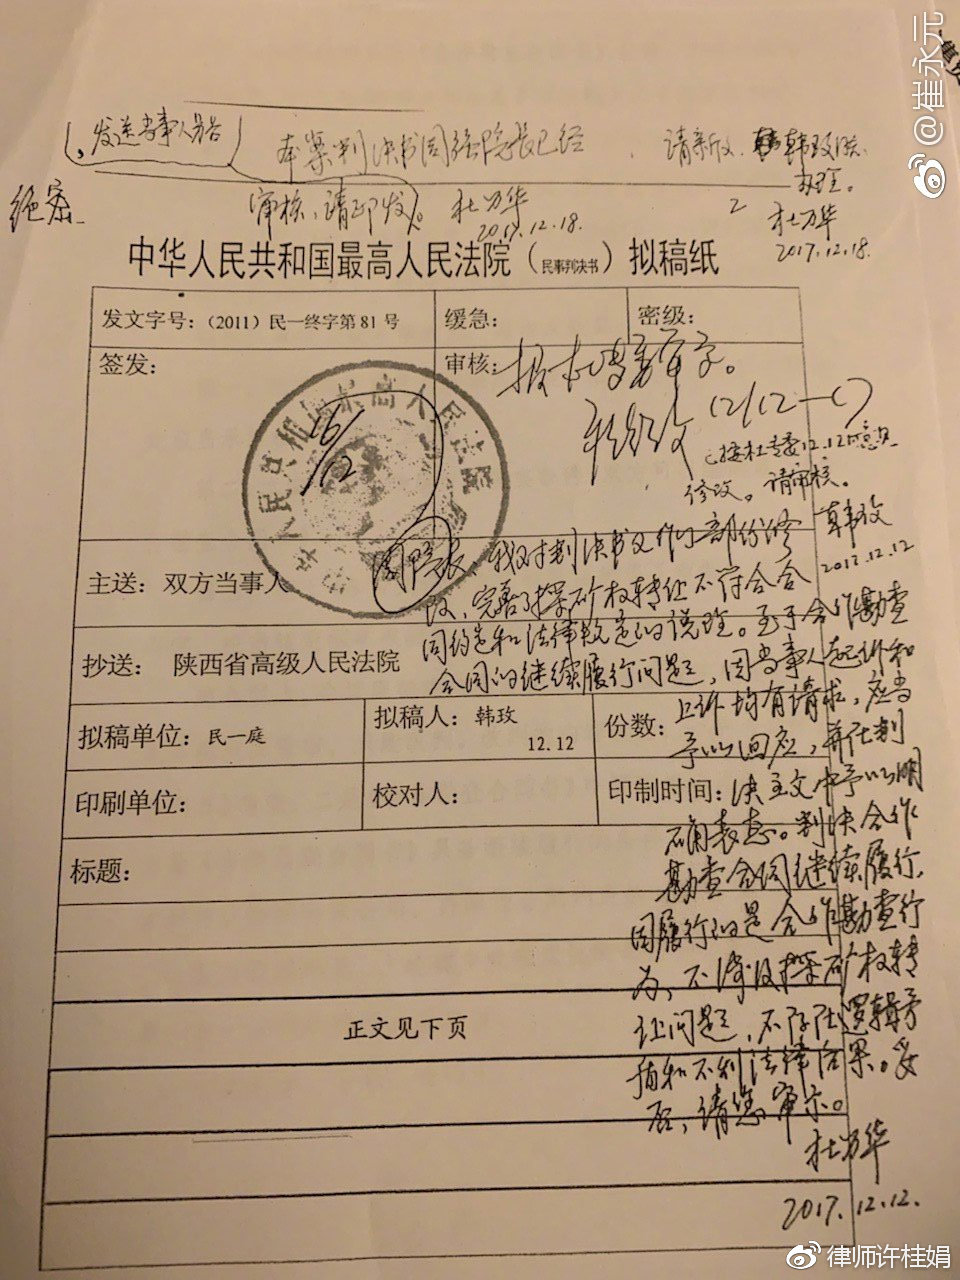 @崔永元
发送当事人另告
本案判决书周强院长已经
审核，请印发。杜万华
2017.12.18.
请新 韩玫
办理。
杜万华
2017.12.18.
绝密
中华人民共和国最高人民法院（民事判决书）拟稿纸
发文字号：（2011）民一终字第81号 缓急： 密级：
签发： 审核：
报杜专委审定。
12/12—17
（按杜专委12.12意见
修改。请审核。
韩玫
2017.12.12
中华人民共和国最高人民法院
16/12
主送：双方当事人
抄送：陕西省高级人民法院
周院长：我对判决书又作了部份修
改，完善了探矿权转让不符合合
同约定和法律规定的说理。至于合作勘查
合同的继续履行问题，因当事人起诉和
上诉均有请求，应当
予以回应，并在判
决主文中予以明
确表态。判决合作
勘查合同继续履行，
因履行的是合作勘查行
为，不涉及探矿权转
让问题，不存在逻辑矛
盾和不利法律后果。妥
否，请您审示。
杜万华
2017.12.12.
拟稿单位：民一庭 拟稿人：韩玫 12.12 份数：
印刷单位： 校对人： 印制时间：
标题：
正文见下页
@律师许桂娟